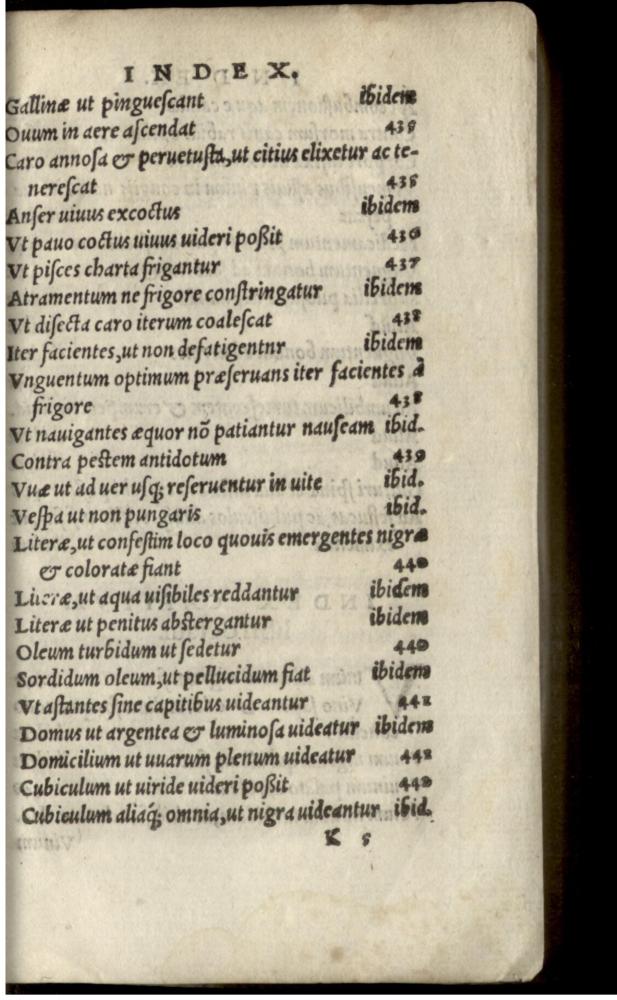 INDEX.
Gallinæ ut pinguescant ibidem
Ouum in aere ascendat 435
Caro annosa & peruetusta, ut citius elixetur ac te-
nerescat 435
Anser uiuus excoctus ibidem
Vt pauo coctus uiuus uideri poßit 436
Vt pisces charta frigantur 437
Atramentum ne frigore constringatur ibidem
Vt disecta caro iterum coalescat 438
Iter facientes, ut non defatigentnr ibidem
Vnguentum optimum præseruans iter facientes à
frigore 438
Vt nauigantes æquor nõ patiantur nauseam ibid.
Contra pestem antidotum 439
Vuæ ut ad uer usq; reseruentur in uite ibid.
Vespa ut non pungaris ibid.
Literæ, ut confestim loco quouis emergentes nigræ
& coloratæ fiant 440
Literæ, ut aqua uisibiles reddantur ibidem
Literæ ut penitus abstergantur ibidem
Oleum turbidum ut sedetur 440
Sordidum oleum, ut pellucidum fiat ibidem
Vt astantes sine capitibus uideantur
Domus ut argentea & luminosa uideatur ibidem
Domicilium ut uuarum plenum uideatur
Cubiculum ut uiride uideri poßit
Cubiculum aliaq́; omnia, ut nigra uideantur ibid.
K 5